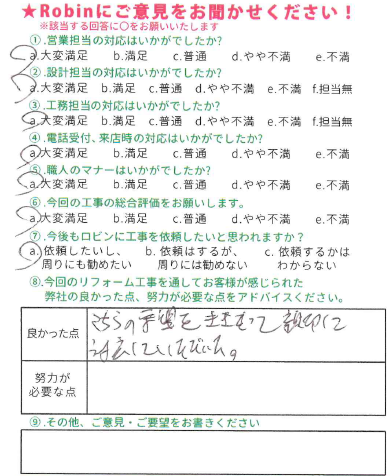 ★Robinにご意見をお聞かせください！
※該当する回答に〇をお願いいたします
①.営業担当の対応はいかがでしたか?
a.大変満足 b.満足 c.普通 d.やや不満 e.不満
②.設計担当の対応はいかがでしたか?
a.大変満足 b.満足 c.普通 d.やや不満 e.不満 f.担当無
③.工務担当の対応はいかがでしたか?
a.大変満足 b.満足 c.普通 d.やや不満 e.不満 f.担当無
④.電話受付、来店時の対応はいかがでしたか?
a.大変満足 b.満足 c.普通 d.やや不満 e.不満
⑤.職人のマナーはいかがでしたか?
a.大変満足 b.満足 c.普通 d.やや不満 e.不満
⑥.今回の工事の総合評価をお願いします。
a.大変満足 b.満足 c.普通 d.やや不満 e.不満
⑦.今後もロビンに工事を依頼したいと思われますか?
a.依頼したいし、 b. 依頼はするが、 c. 依頼するかは
周りにも勧めたい 周りには勧めない わからない
⑧.今回のリフォーム工事を通してお客様が感じられた
弊社の良かった点、努力が必要な点をアドバイスください。
良かった点
こちらの要望を
対応していただいた。
努力が
必要な点
⑨.その他、ご意見・ご要望をお書きください